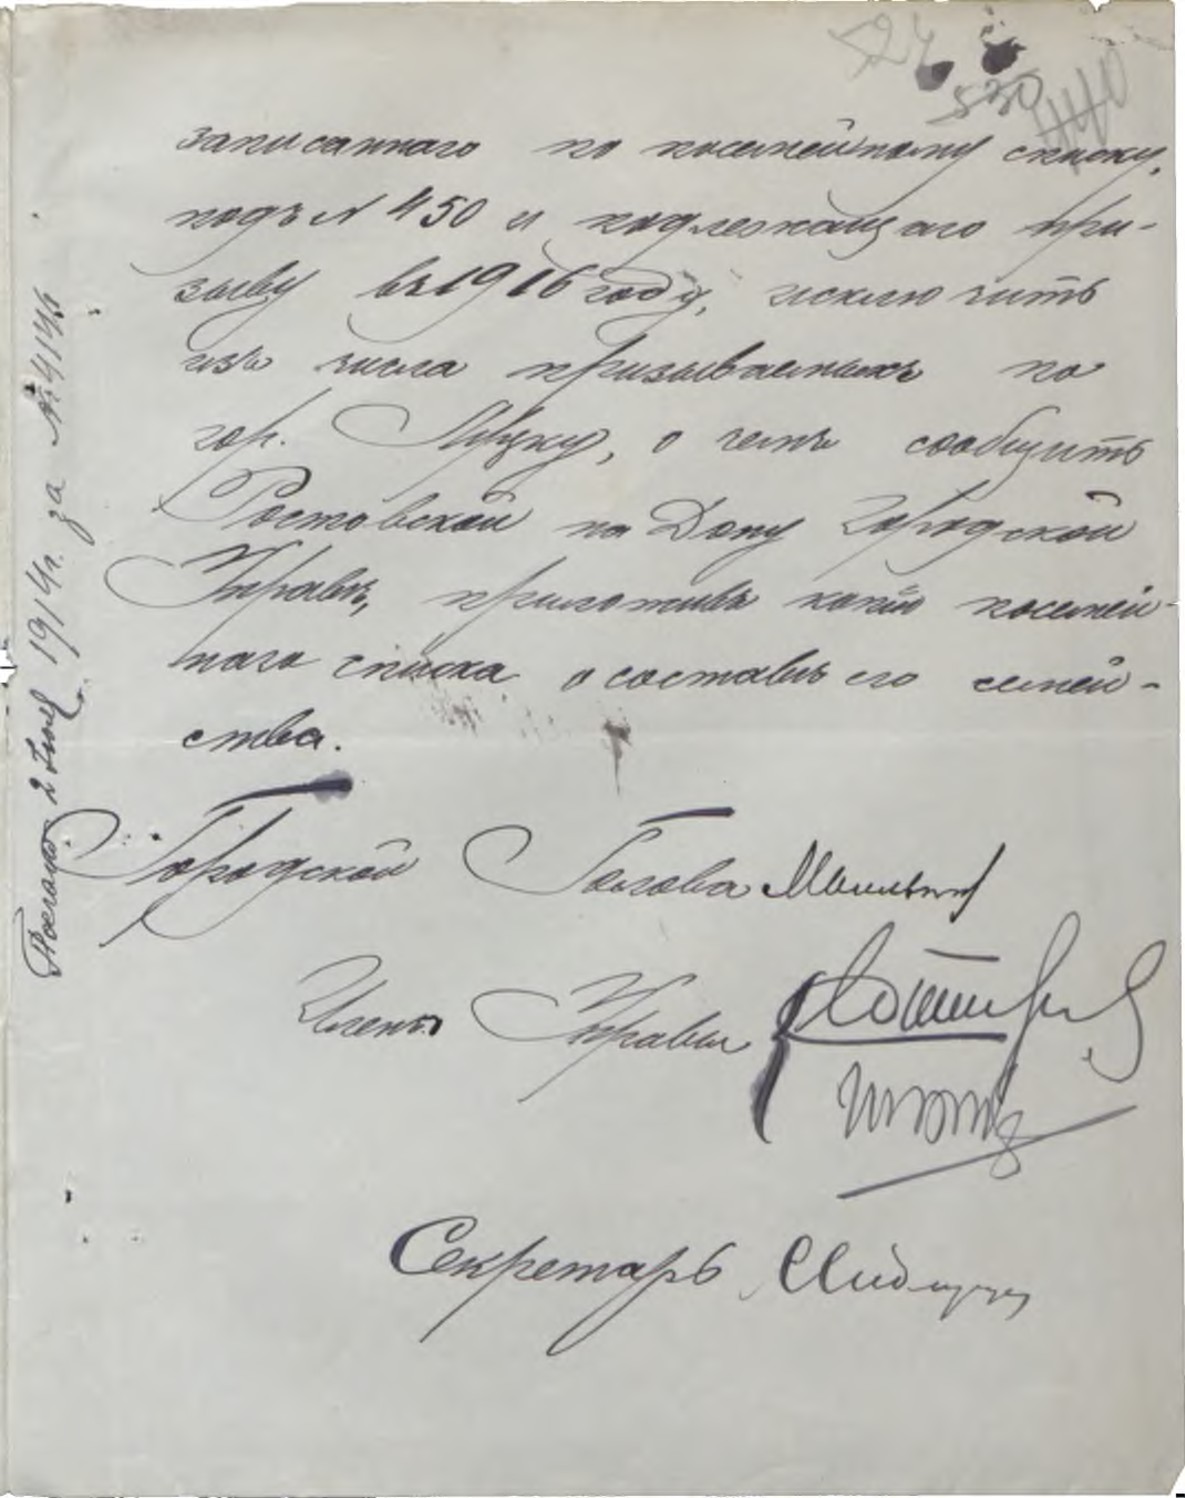 527
530
записаннаго по посемейному списку,
подъ № 450 и подлежащаго при-
зыву въ 1916 году, исключить
изъ числа призываемыхъ по
гор. Луцку, о чемъ сообщить
Ростовской на Дону Городской
Управѣ, приложивъ копію посемей-
наго списка о составѣ его семей-
ства.
Городской Голова
Члены Управы
Секретарь
1914г. за № 4146